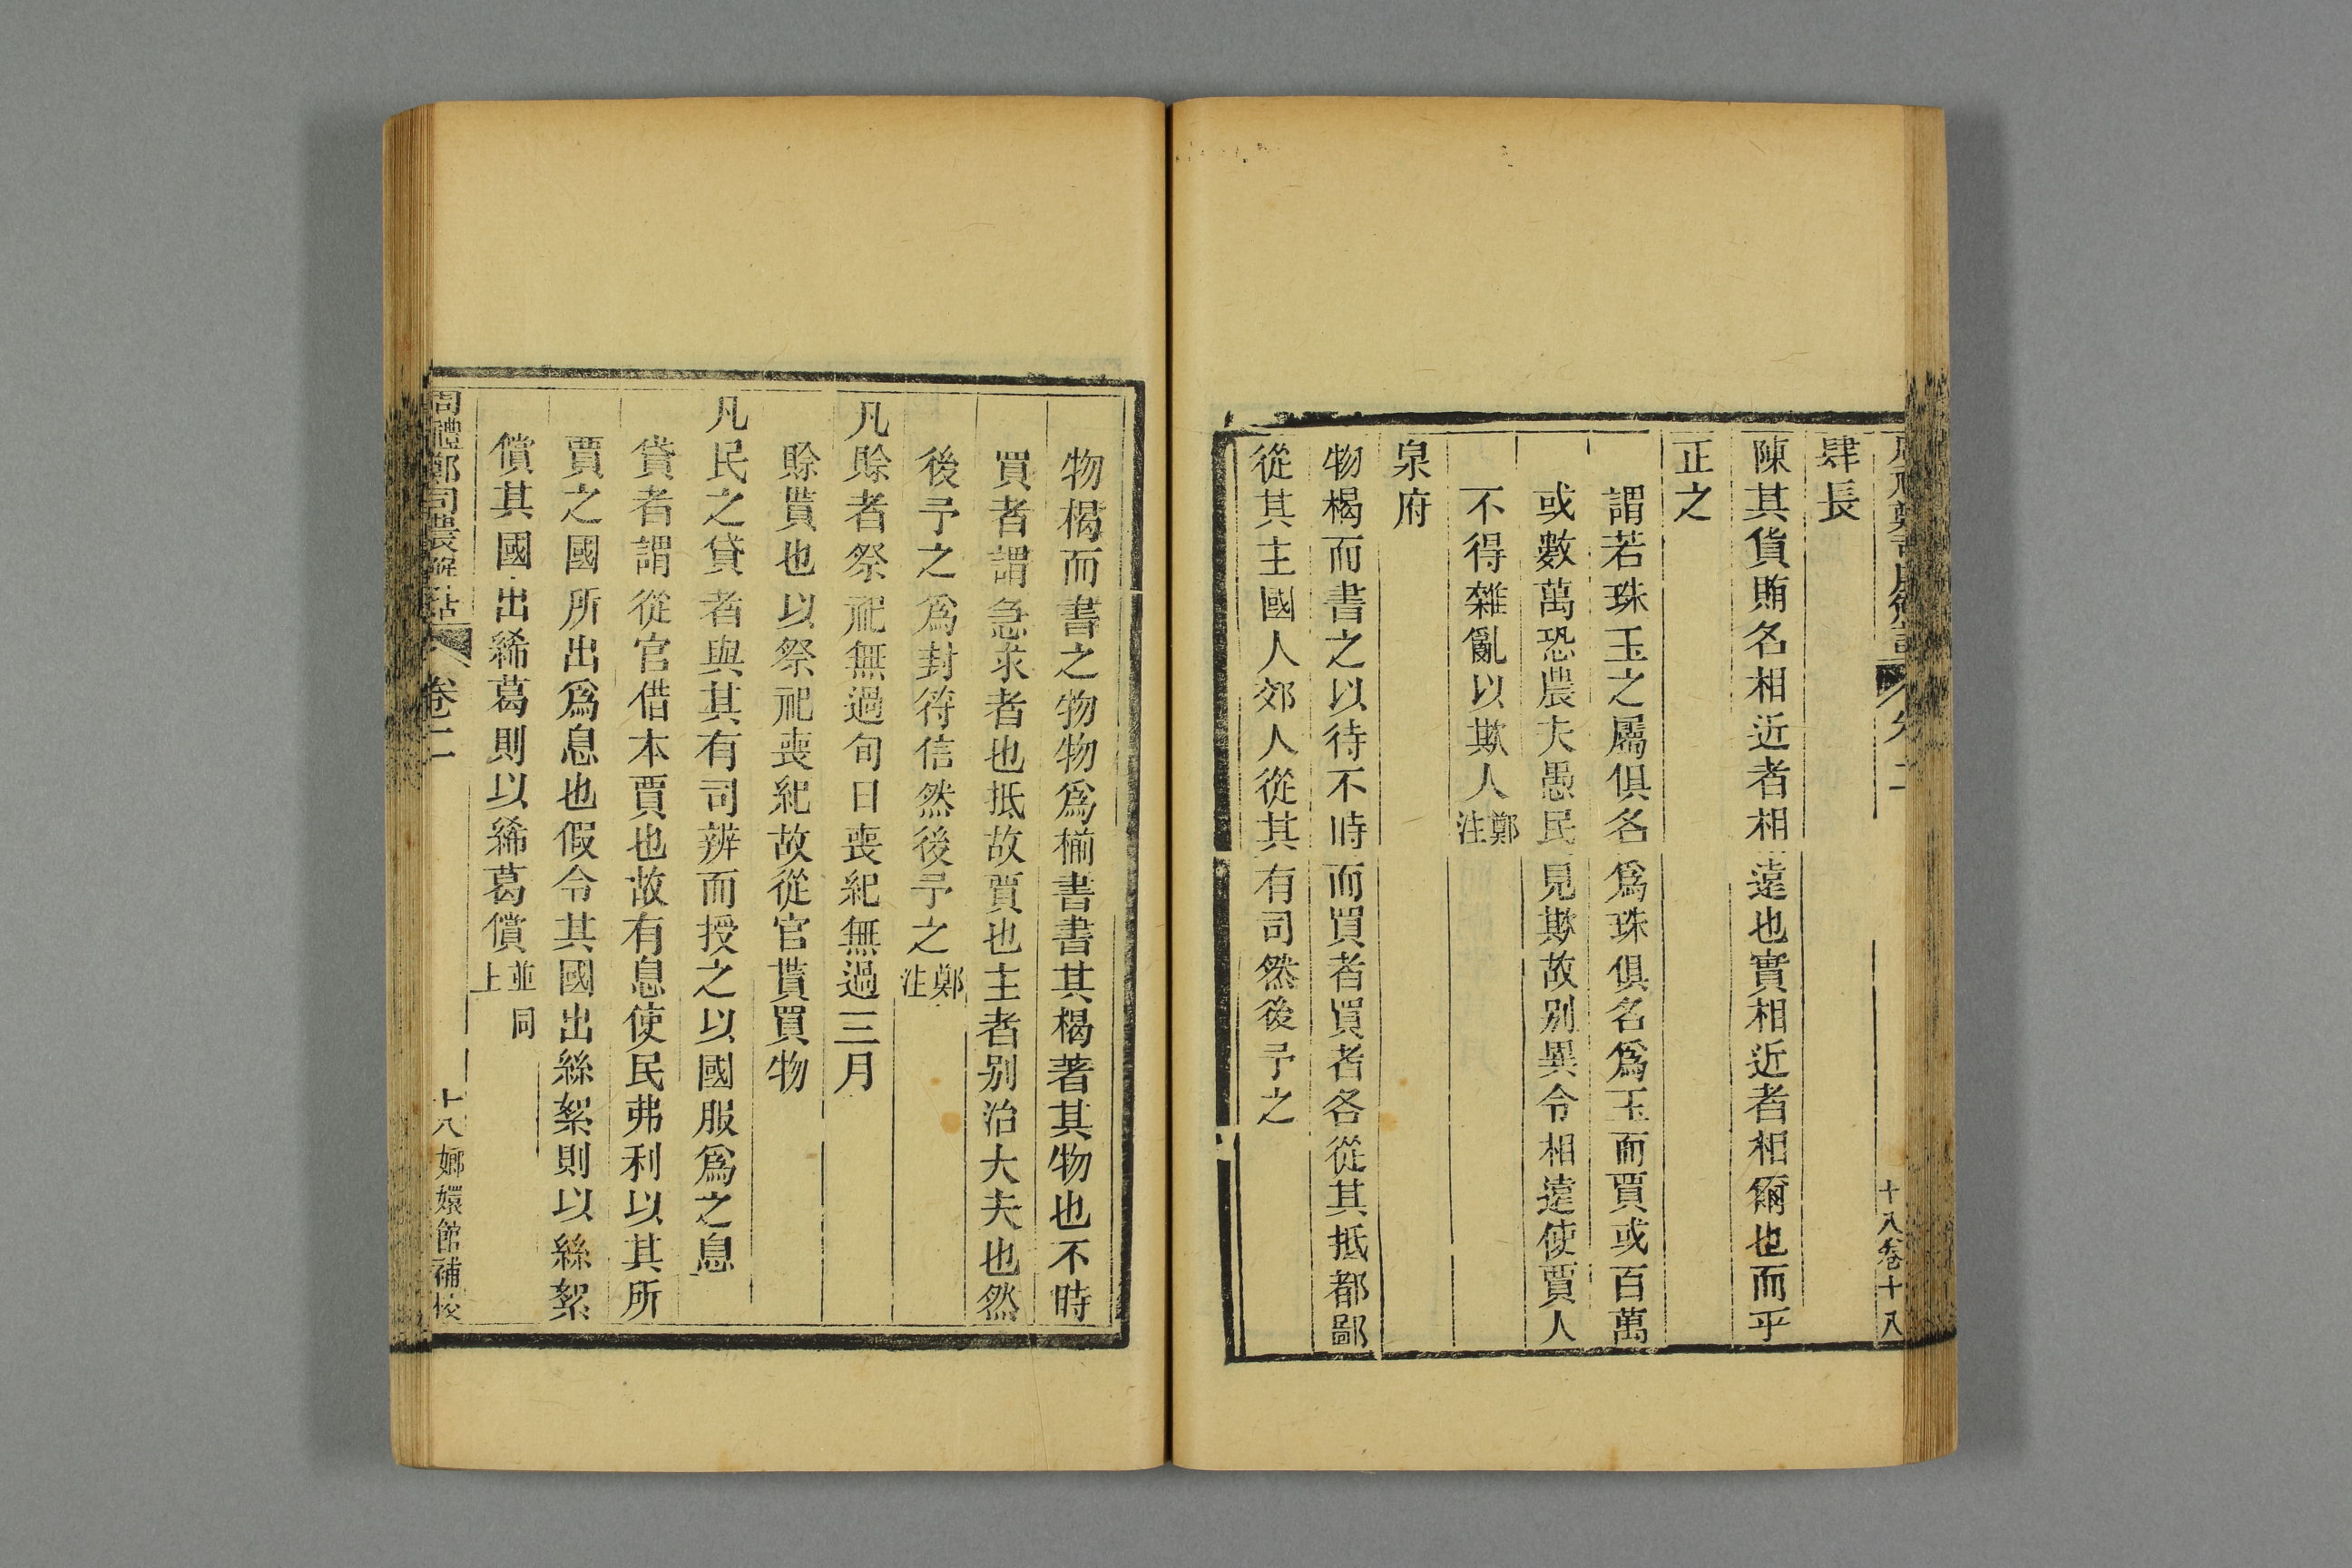 肆長
陳其貨賄名相近者相遠也實相近者相爾也而平
正之
謂若珠玉之屬俱名爲珠俱名爲玉而賈或百萬
或數萬恐農夫愚民見欺故別異令相遠使賈人
不得雜亂以欺人鄭注
泉府
物楬而書之以待不時而買者買者各從其抵都鄙
從其主國人郊人從其有司然後予之
十八卷十八
物楬而書之物物爲揃書書其楬著其物也不時
買者謂急求者也抵故賈也主者別治大夫也然
後予之爲封符信然後予之鄭注
凡賒者祭祀無過旬日喪紀無過三月
賒貰也以祭祀喪紀故從官貰買物
凡民之貸者與其有司辨而授之以國服爲之息
貸者謂從官借本賈也故有息使民弗利以其所
賈之國所出爲息也假令其國出絲絮則以絲絮
償其國出絺葛則以絺葛償並同上
周禮鄭司農解詁 卷二 十八 嫏嬛館補校